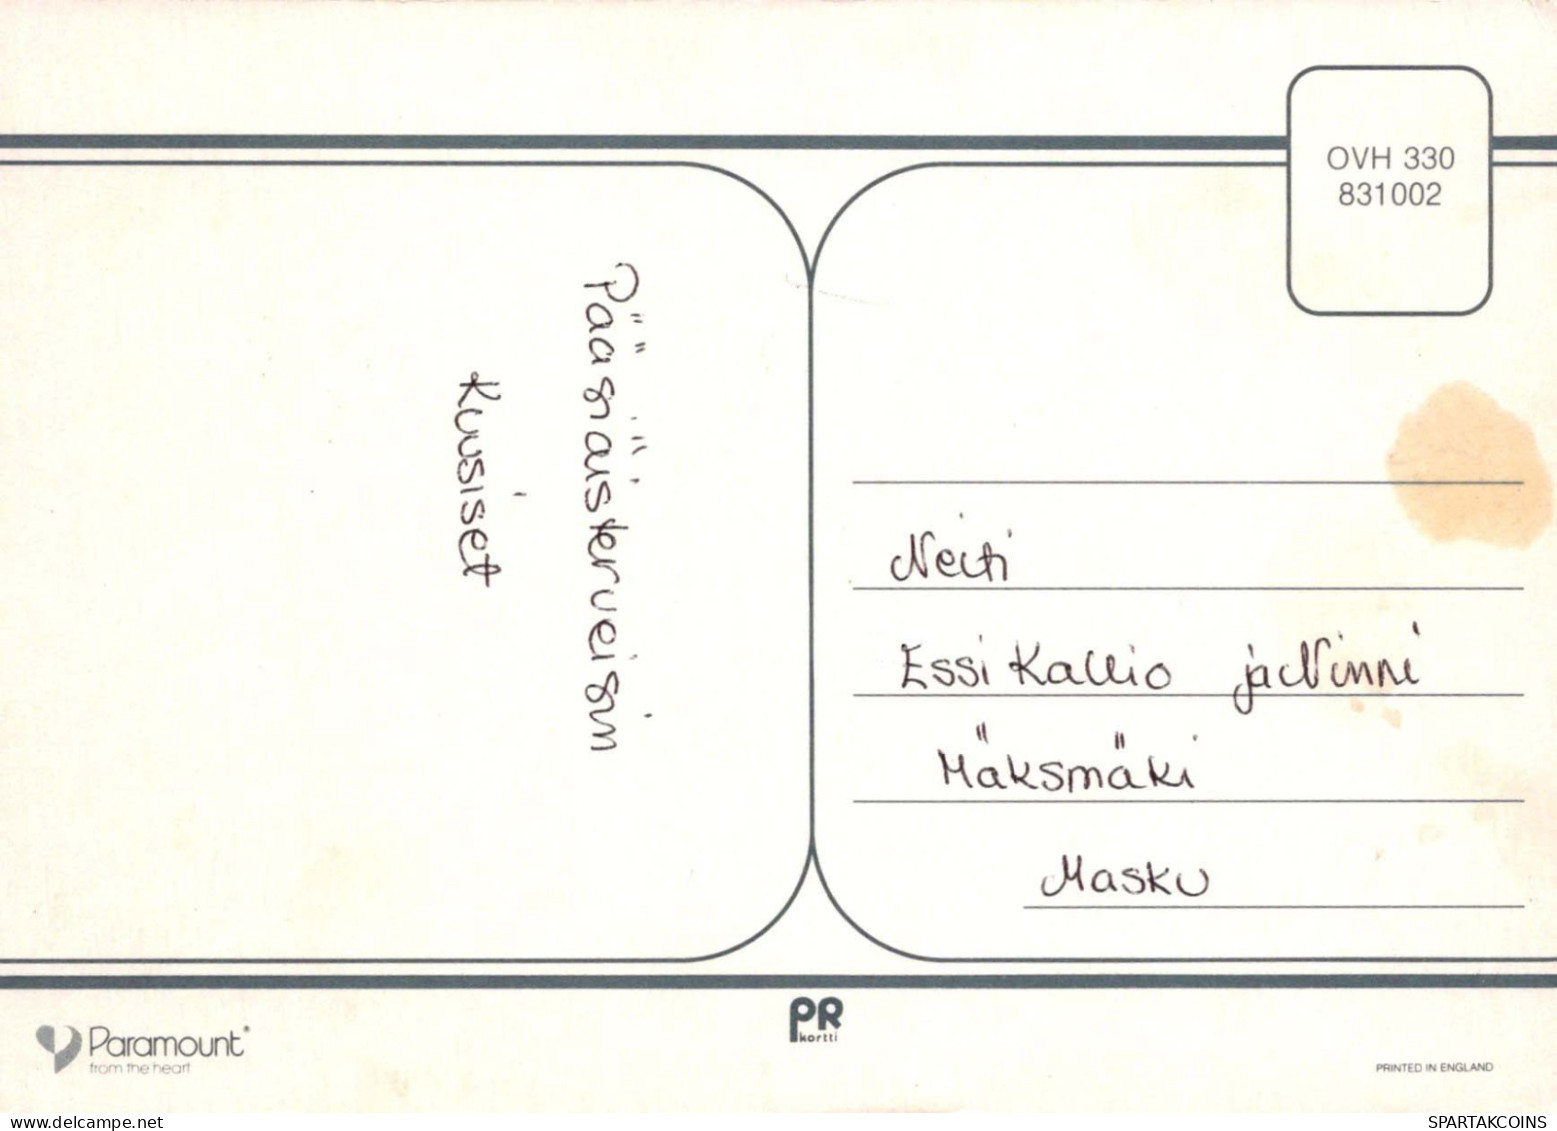 OVH 330
831002
Pääsiäisterveisin
Kuusiset
Neiti
Essi Kallio ja Ninni
Mäksmäki
Masku
Paramount
from the heart
PR
kortti
PRINTED IN ENGLAND
delcampe.net
SPARTAKCOINS